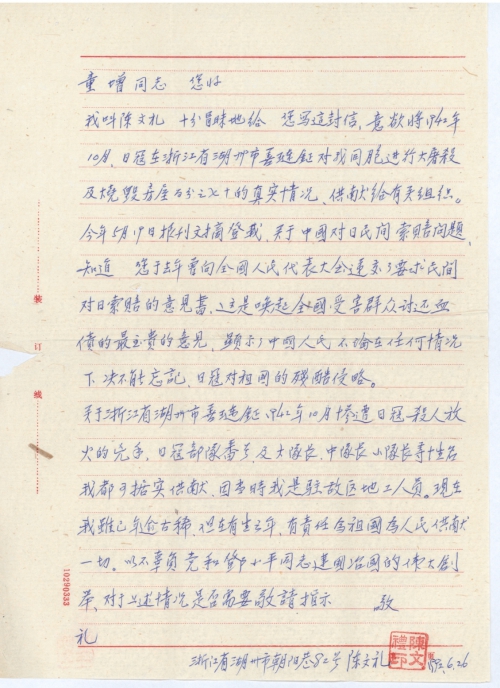 童增同志 您好
我叫陈文礼 十分冒昧地给 您写这封信,意欲将1942年
10月,日冠在浙江省湖州市善琏鎮对我同胞进行大屠殺
及烧毀房屋百分之七十的真实情况,供献给有关组织。
今年5月19日报刊文摘登载,关于中國对日民间索赔问题,
知道 您于去年曾向全國人民代表大会递交了要求民间
对日索赔的意见書,这是唤起全國受害群众讨还血
债的最宝贵的意见,顯示了中國人民不論在任何情况
下,决不能忘記,日冠对祖国的残酷侵略。
关于浙江省湖州市善琏鎮1942年10月惨遭日冠殺人放
火的元凶,日冠部隊番号及大隊长,中隊长小隊长等姓名
我都可据实供献,因当時我是駐敌区地工人员。現在
我雖已年逾古稀,但在有生之年,有責任為祖國為人民供献
一切。以不辜負党和邓小平同志建國治國的偉大創
举,对上述情况是否需要敬請指示 敬
礼
浙江省湖州市朝阳巷82号 陈文礼 6.26
陳文禮印
装
订
线
10290333